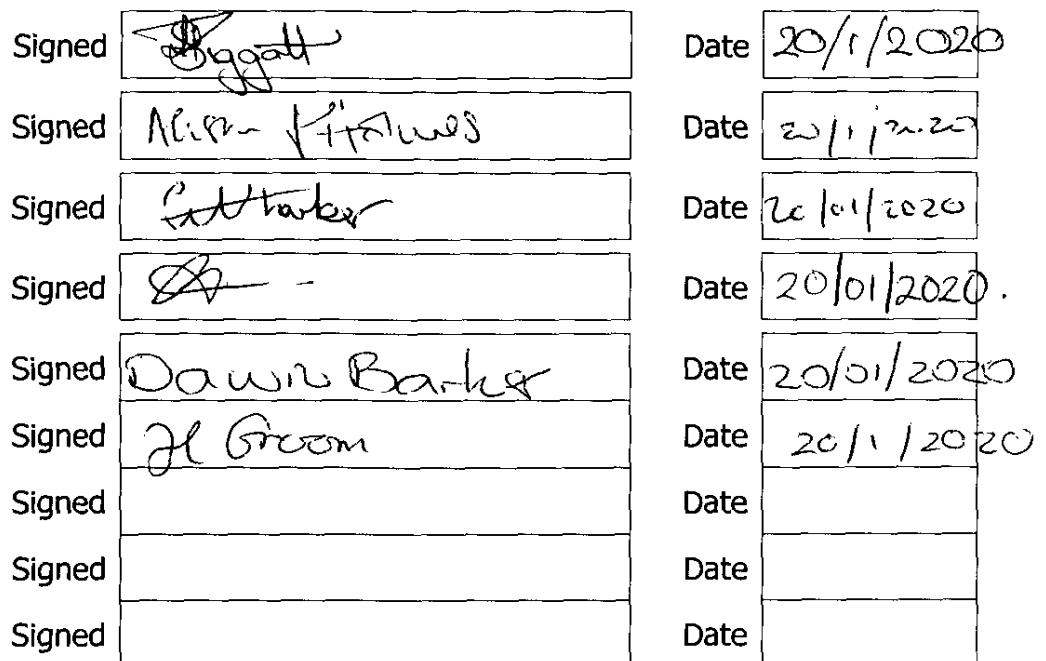 Signed Date 20/1/2020
Signed Date 20/1/2020
Signed Date 20/01/2020
Signed Date 20/01/2020.
Signed Barker Date 20/01/2020
Signed Groom Date 20/1/2020
Signed Date
Signed Date
Signed Date